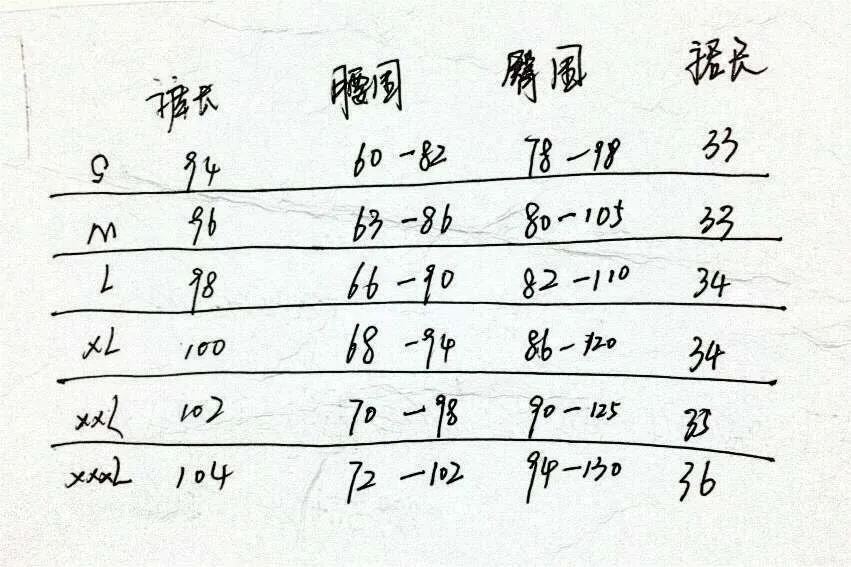 裤长 腰围 臀围 裙长
S 94 60-82 78-98 33
M 96 63-86 80-105 33
L 98 66-90 82-110 34
XL 100 68-94 86-120 34
XXL 102 70-98 90-125 35
XXXL 104 72-102 94-130 36